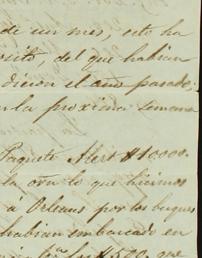 de un mes, esto ha
sito, del que habian
dicion el año pasado;
la proxima semana
Paquete Alert $10000.
la orn lo que hicimos
á Orleans por los buques
habian embarcado en
$500, que